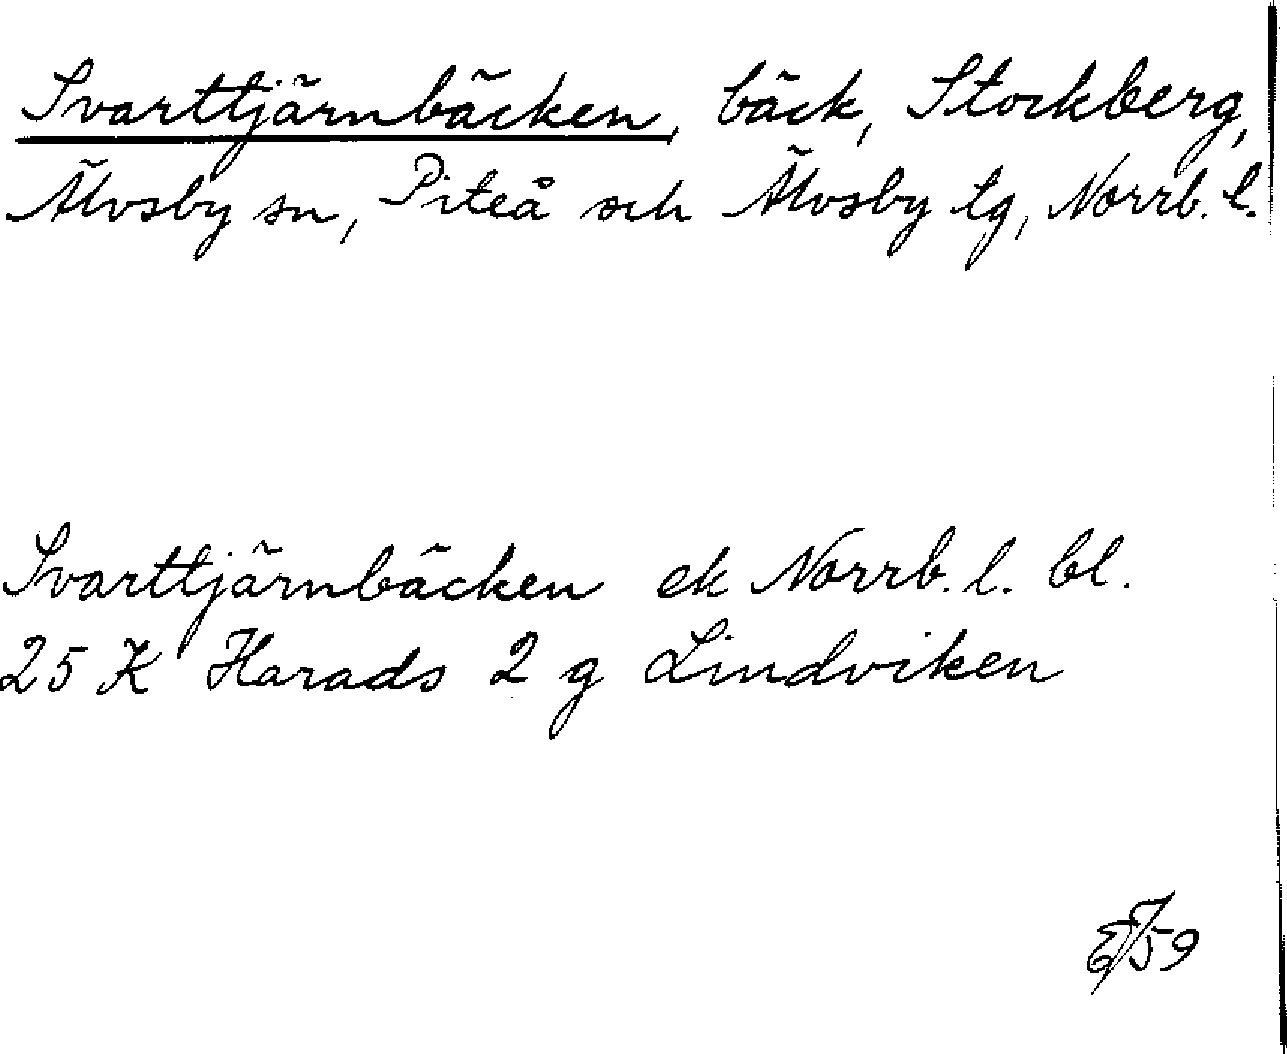 Svarttjärnbäcken, bäck, Stockberg,
Älvsby sn, Piteå och Älvsby tg, Norrb. l.
Svarttjärnbäcken ek Norrb. l. bl.
25 K Harads 2 g Lindviken